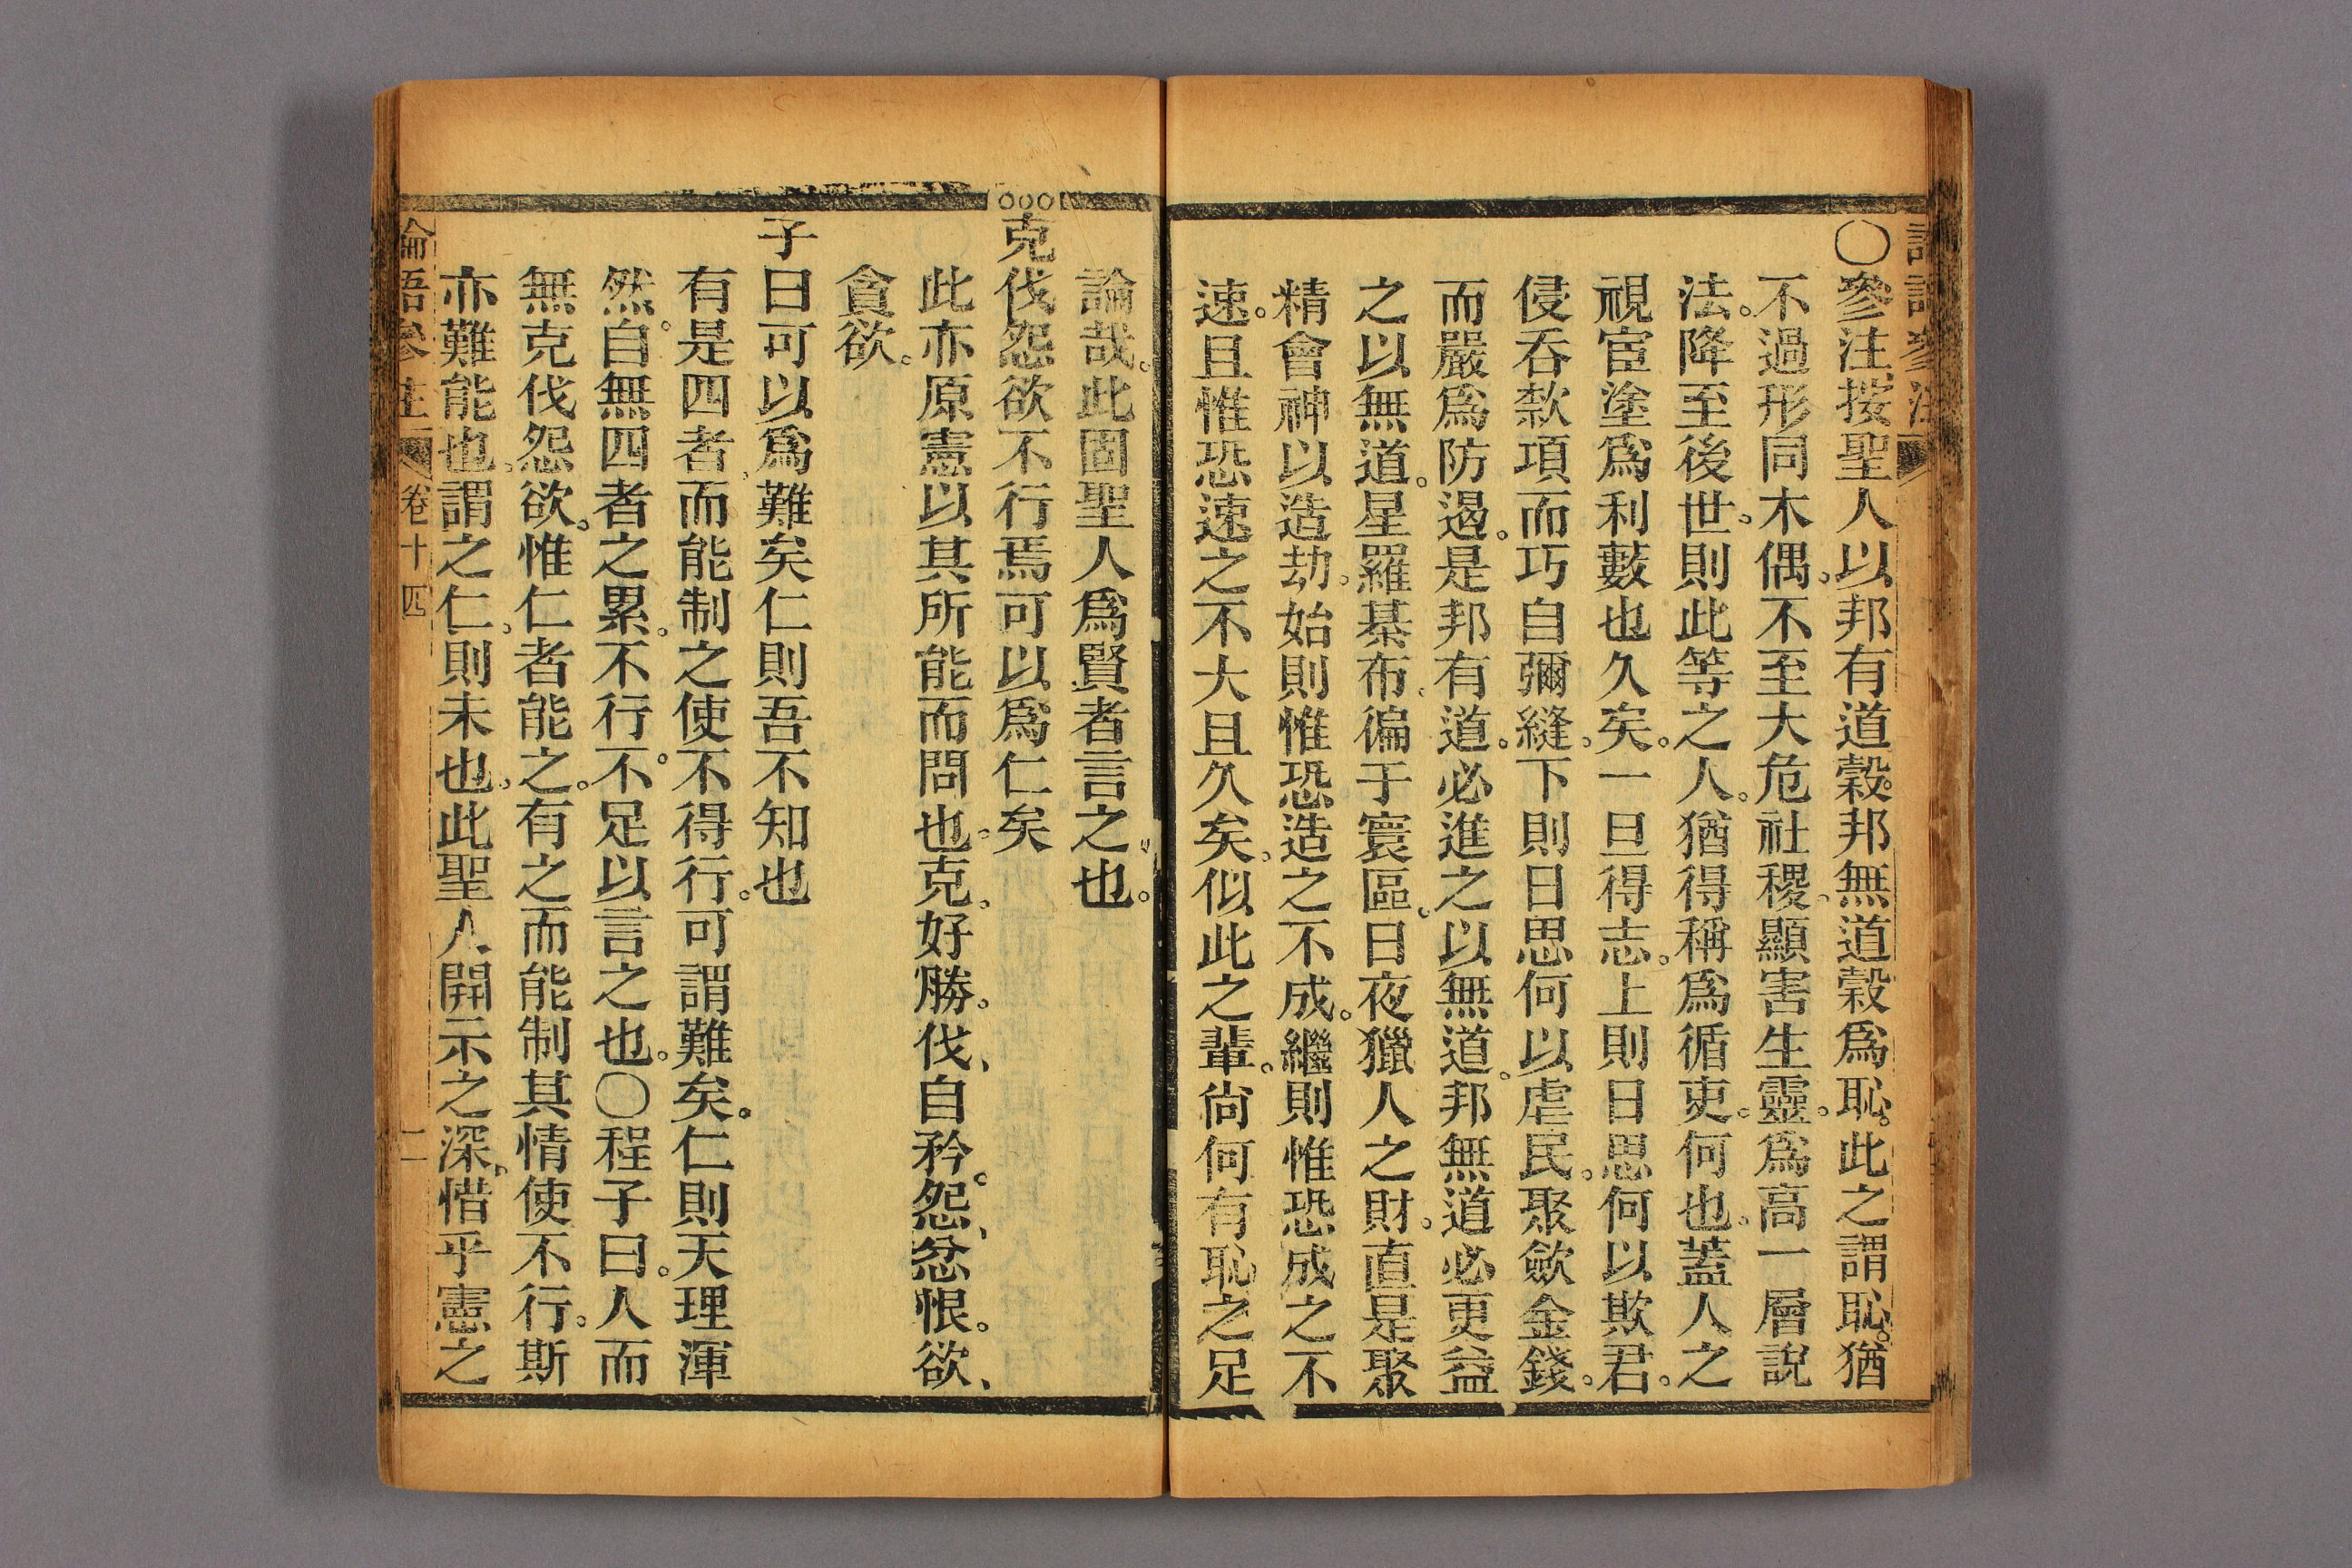 〇參注按聖人以邦有道穀。邦無道穀爲恥。此之謂恥。猶
不過形同木偶。不至大危社稷。顯害生靈。爲高一層說
法。降至後世。則此等之人。猶得稱爲循吏。何也。蓋人之
視宦塗爲利藪也久矣。一旦得志。上則日思何以欺君。
侵吞款項而巧自彌縫。下則日思何以虐民。聚歛金錢。
而嚴爲防遏。是邦有道。必進之以無道。邦無道必更益
之以無道。星羅棊布。徧于寰區。日夜獵人之財。直是聚
精會神以造劫。始則惟恐造之不成。繼則惟恐成之不
速。且惟恐速之不大且久矣。似此之輩。尙何有恥之足
論哉。此固聖人爲賢者言之也。
克伐怨欲不行焉可以爲仁矣
此亦原憲以其所能而問也。克。好勝。伐、自矜。怨、忿恨。欲、
貪欲。
子曰可以爲難矣仁則吾不知也
有是四者。而能制之使不得行。可謂難矣。仁則天理渾
然。自無四者之累。不行。不足以言之也。〇程子曰。人而
無克伐怨欲。惟仁者能之。有之而能制其情使不行。斯
亦難能也。謂之仁。則未也。此聖人開示之深。惜乎憲之
論語參注 卷十四 二